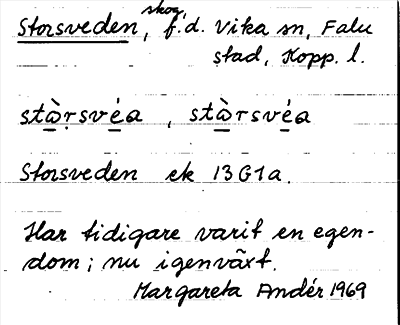 Storsveden, skog, f.d. Vika sn, Falu
stad, Kopp. l.
stà̱ṛsvé̱a, stà̱rsvé̱a
Storsveden ek 13G1a.
Har tidigare varit en egen-
dom; nu igenväxt.
Margareta Andér 1969